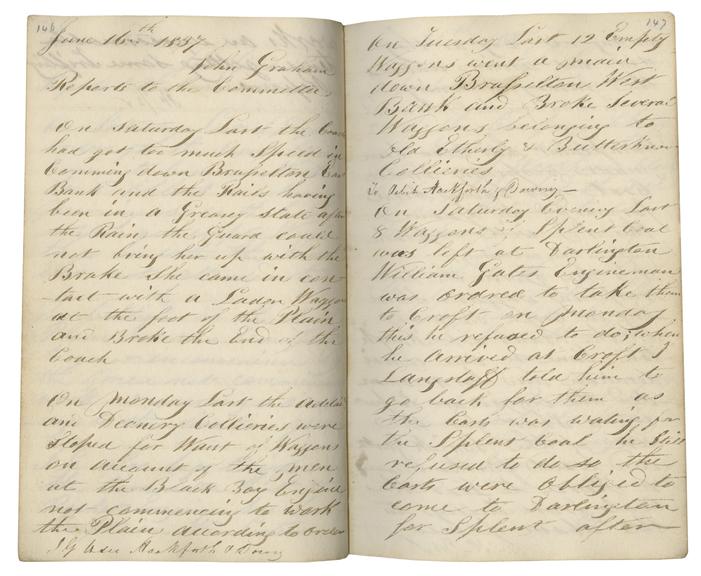 146
June 16th 1837
John Graham
Reports to the Committee
On Saturday Last the Coach
had got too much Speed in
Comming down Brusselton East
Bank and the Rails having
been in a Greasy State after
the Rain the Guard could
not bring her up with the
Brake She came in con-
tact with a Laden Waggon
at the foot of the Plain
and Broke the End of the
Coach
On Monday Last the
and Deanery Collieries were
Stoped for Want of Waggons
on account of the men
at the Black Boy Engine
not commencing to work
the Plain according to order
Hackforth & Downy
147
On Tuesday Last 12 Empty
Waggons went a main
down Brusselton West
Bank and Broke Several
Waggons belonging to
Old Etherly & Butterknow
Collieries
Hackforth & Downy
On Saturday Evening Last
8 Waggons of Splent Coal
was left at Darlington
William Gates Engineman
was ordred to take them
to Croft on Monday
this he refused to do; when
he arrived at Croft J
Langstaff told him to
go back for them as
the Carts was wating for
the Splent Coal he Still
refused to do so the
Carts were Obliged to
come to Darlington
for Splent after